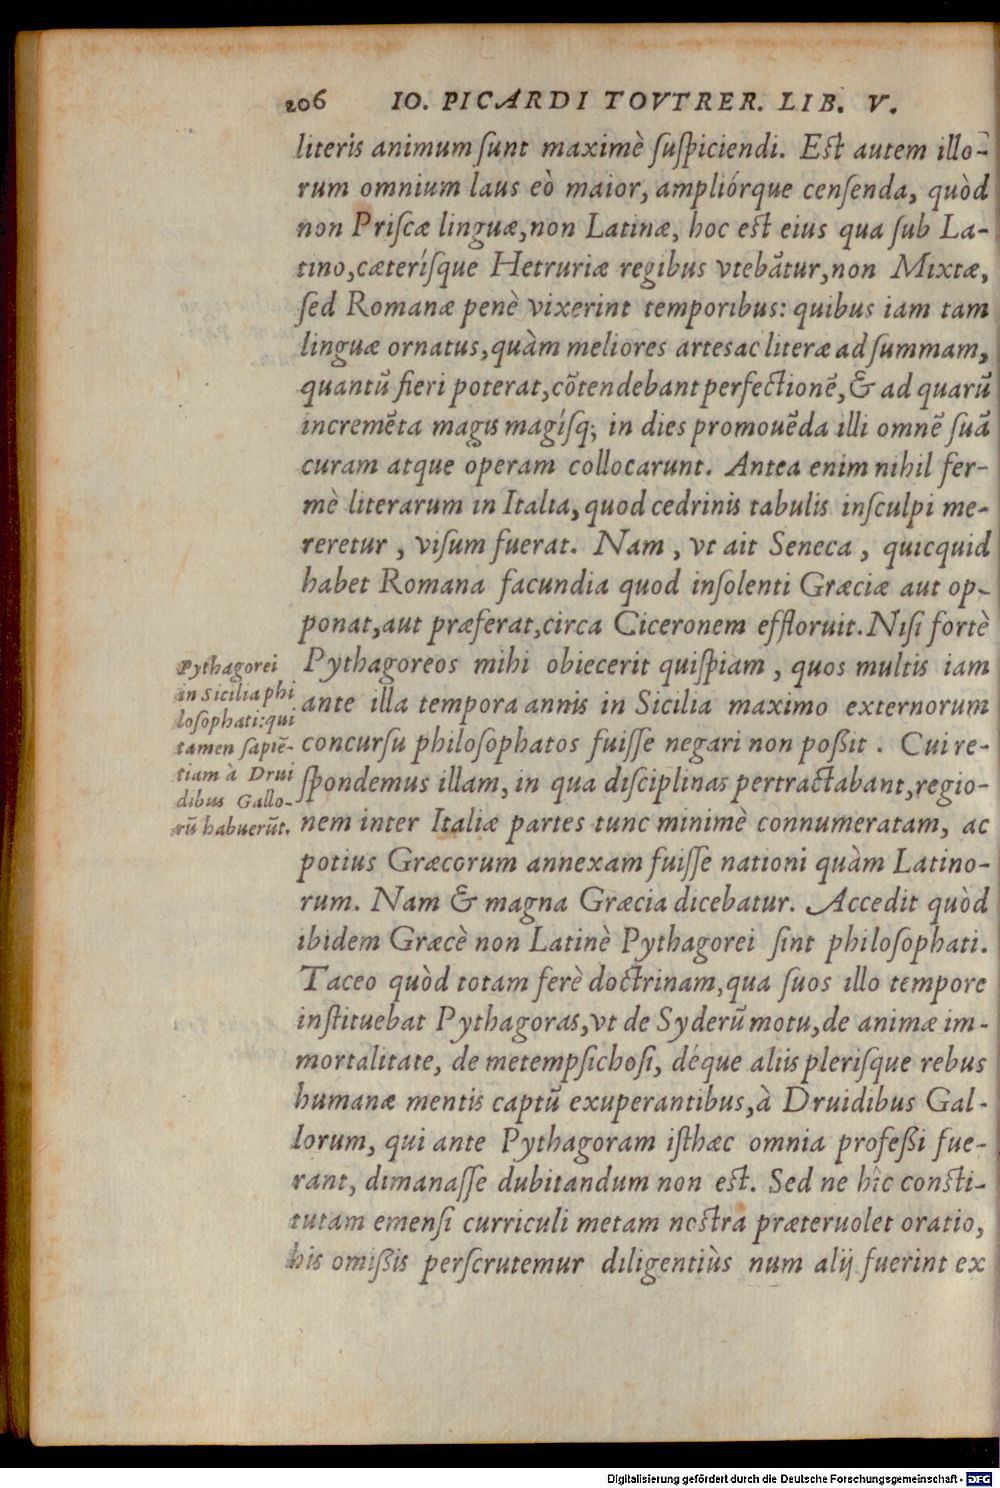 206 IO. PICARDI TOVTRER. LIB. V.
literis animum ſunt maximè ſuſpiciendi. Eſt autem illo-
rum omnium laus eò maior, ampliórque cenſenda, quòd
non Priſcæ linguæ, non Latinæ, hoc eſt eius qua ſub La-
tino, cæteríſque Hetruriæ regibus vtebãtur, non Mixtæ,
ſed Romanæ penè vixerint temporibus: quibus iam tam
linguæ ornatus, quàm meliores artes ac literæ ad ſummam,
quantũ fieri poterat, cõtendebant perfectionẽ, & ad quarũ
incremẽta magis magíſq; in dies promouẽda illi omnẽ ſuã
curam atque operam collocarunt. Antea enim nihil fer-
mè literarum in Italia, quod cedrinis tabulis inſculpi me-
reretur, viſum fuerat. Nam, vt ait Seneca, quicquid
habet Romana facundia quod inſolenti Græciæ aut op-
ponat, aut præferat, circa Ciceronem effloruit. Niſi fortè
Pythagoreos mihi obiecerit quiſpiam, quos multis iam
ante illa tempora annis in Sicilia maximo externorum
concurſu philoſophatos fuiſſe negari non poßit. Cui re-
ſpondemus illam, in qua diſciplinas pertractabant, regio-
nem inter Italiæ partes tunc minimè connumeratam, ac
potius Græcorum annexam fuiſſe nationi quàm Latino-
rum. Nam & magna Græcia dicebatur. Accedit quòd
ibidem Græcè non Latinè Pythagorei ſint philoſophati.
Taceo quòd totam ferè doctrinam, qua ſuos illo tempore
inſtituebat Pythagoras, vt de Syderũ motu, de animæ im-
mortalitate, de metempſichoſi, déque aliis pleriſque rebus
humanæ mentis captũ exuperantibus, à Druidibus Gal-
lorum, qui ante Pythagoram iſthæc omnia profeßi fue-
rant, dimanaſſe dubitandum non eſt. Sed ne hîc conſti-
tutam emenſi curriculi metam noſtra præteruolet oratio,
his omißis perſcrutemur diligentiùs num alij fuerint ex
Pythagorei
in Sicilia phi
loſophati: qui
tamen ſapiẽ-
tiam à Drui
dibus Gallo-
rũ habuerũt.
Digitalisierung gefördert durch die Deutsche Forschungsgemeinschaft - DFG